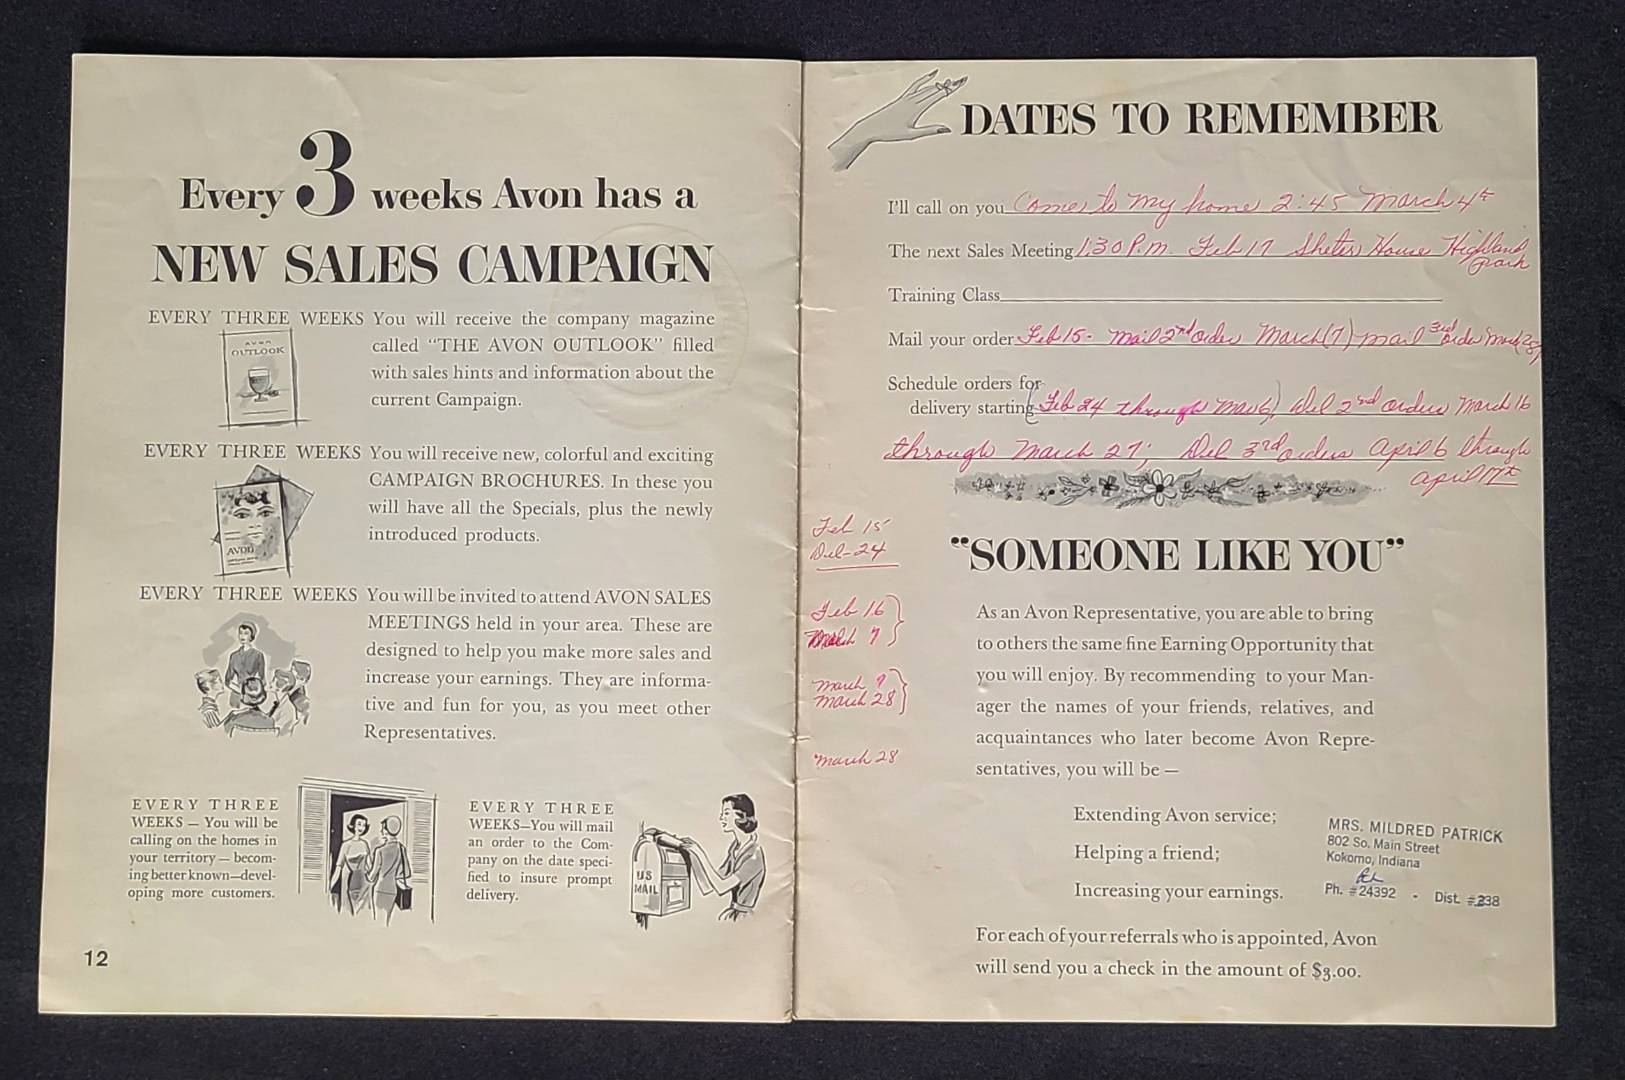 Every 3 weeks Avon has a
NEW SALES CAMPAIGN
EVERY THREE WEEKS You will receive the company magazine
called “THE AVON OUTLOOK” filled
with sales hints and information about the
current Campaign.
AVON
OUTLOOK
EVERY THREE WEEKS You will receive new, colorful and exciting
CAMPAIGN BROCHURES. In these you
will have all the Specials, plus the newly
introduced products.
AVON
EVERY THREE WEEKS You will be invited to attend AVON SALES
MEETINGS held in your area. These are
designed to help you make more sales and
increase your earnings. They are informa-
tive and fun for you, as you meet other
Representatives.
EVERY THREE
WEEKS — You will be
calling on the homes in
your territory — becom-
ing better known—devel-
oping more customers.
EVERY THREE
WEEKS—You will mail
an order to the Com-
pany on the date speci-
fied to insure prompt
delivery.
US
MAIL
12
DATES TO REMEMBER
I'll call on you Come to my home 2:45 March 4th
The next Sales Meeting 1:30 P.m. Feb 17 Shelter House Highland
Park
Training Class
Mail your order Feb 15 - Mail 2nd order March (7) mail 3rd order March 28)
Schedule orders for
delivery starting (Feb 24 through Mar 6) Del 2nd orders March 16
through March 27; Del 3rd orders April 6 through
April 17th
Feb 15
Del-24
Feb 16
March 7
March 7
March 28
March 28
“SOMEONE LIKE YOU”
As an Avon Representative, you are able to bring
to others the same fine Earning Opportunity that
you will enjoy. By recommending to your Man-
ager the names of your friends, relatives, and
acquaintances who later become Avon Repre-
sentatives, you will be —
Extending Avon service;
Helping a friend;
Increasing your earnings.
MRS. MILDRED PATRICK
802 So. Main Street
Kokomo, Indiana
Ph. #24392 - Dist. #238
For each of your referrals who is appointed, Avon
will send you a check in the amount of $3.00.